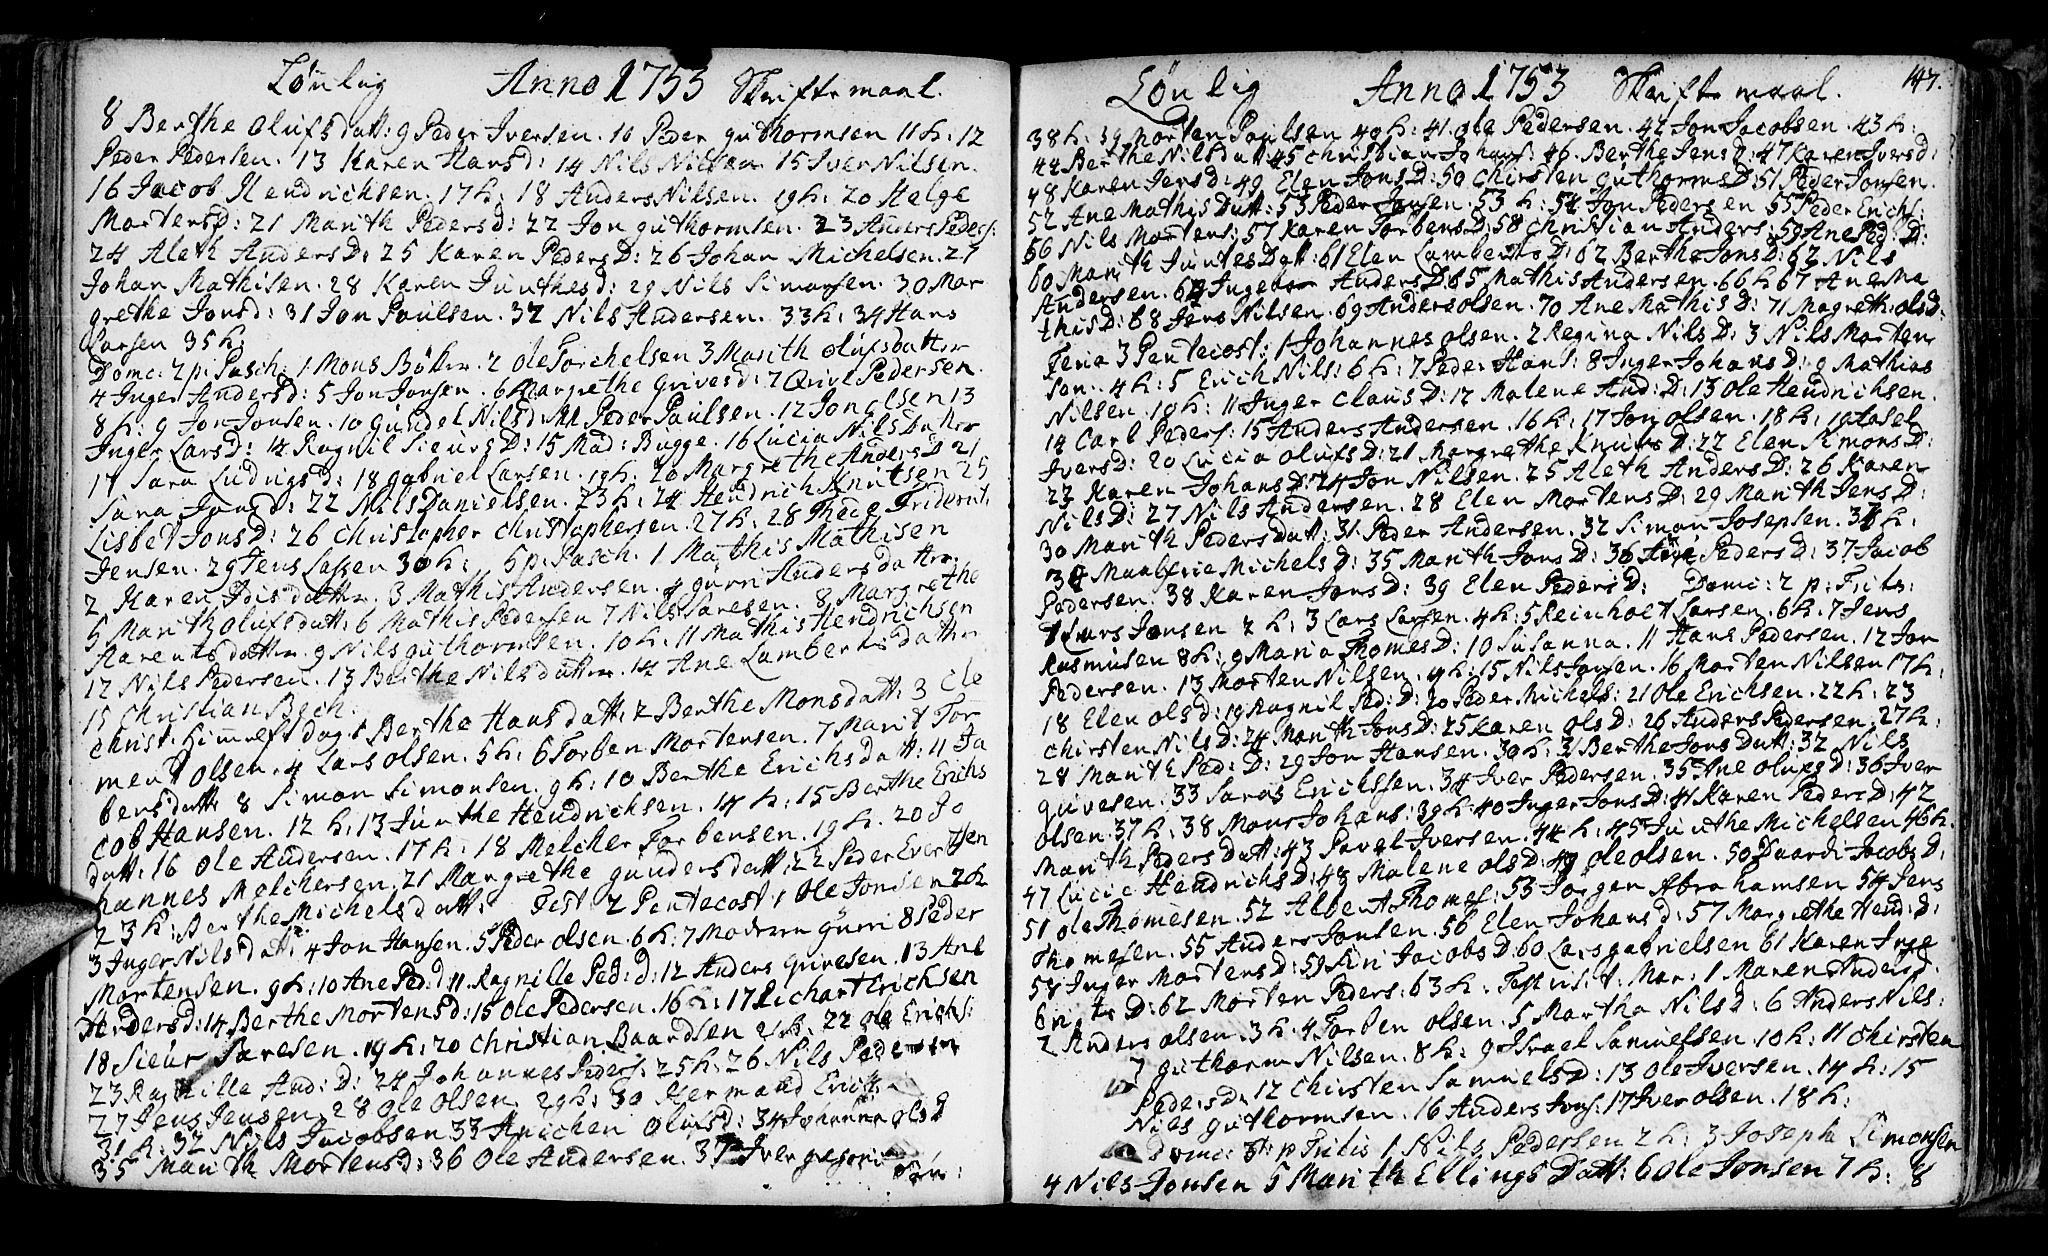 Lønlig Anno 1753 Skriftemaal.
8 Berthe Olufsdatt: 9 Peder Iversen. 10 Peder guthormsen 11 h: 12
Peder Pedersen. 13 Karen Hansd: 14 Nils Nilsen 15 Iver Nilsen.
16 Jacob Hendrichsen. 17 h: 18 Anders Nilsen. 19 h: 20 Helge
Mortensd: 21 Marith Pedersd: 22 Jon guthormsen. 23 Anders Peders:
24 Aleth AndersD: 25 Karen PedersD: 26 Johan Michelsen. 27
Johan Mathisen. 28 Karen Junthesd: 29 Nils Simonsen. 30 Mar
grethe Jonsd: 31 Jon Paulsen. 32 Nils Andersen. 33 h: 34 Hans
Larsen 35 h:
Domc: 2 p: Pasch: 1 Mons Bøhn. 2 Ole Torchelsen 3 Marith olufsdatter
4 Inger Andersd: 5 Jon Jonsen. 6 Margrethe Grivesd: 7 Qrive Pedersen.
8 h: 9 Jon Jonsen. 10 Gundel Nilsd: 11 Peder Paulsen. 12 Jon olsen 13
Inger Larsd: 14 Ragnil SieursD: 15 Mad: Bugge. 16 Lucia Nilsdatter
17 Sara Ludvigsd: 18 gabriel Larsen. 19 h: 20 Margrethe AndersD 21
Sara Jonsd: 22 Nils Danielsen. 23 h: 24 Hendrich Knutsen 25
Lisbet JonsD: 26 Christopher Christophersen. 27 h: 28 Friderich
Jensen. 29 Jens Lassen 30 h: 5 p: Pasch. 1 Mathis Mathisen
2 Karen datter. 3 Mathis Andersen. 4 gurri Andersdatter
5 Marith olufsdatt: 6 Mathis Pedersen 7 Nils Saresen. 8 Margrethe
Arentsdatter. 9 Nils guthormsen. 10 h: 11 Mathis Hendrichsen
12 Nils Pedersen. 13 Berthe Nilsdatter. 14 Ane Lambertsdatter
15 Christian Bech.
Christ: Himelfsdag 1 Berthe Hansdatt: 2 Berthe Monsdatt: 3 Cle
ment olsen. 4 Lars olsen. 5 h: 6 Torben Mortensen. 7 Marit Tor
bensdatt: 8 Simon Simonsen. 9 h: 10 Berthe Erichsdatt: 11 Ja
cob Hansen. 12 h: 13 Junthe Hendrichsen. 14 h: 15 Berthe Erichs
datt: 16 Ole Andersen. 17 h: 18 Melcher Torbensen. 19 h. 20 Jo
hannes Melchersen. 21 Margrethe gundersdatt: 22 Peder Evertsen
23 h: Berthe Michelsdatt: Fest: 2 Pentecost: 1 Ole Jonsen 2 h
3 Inger Nilsdatt: 4 Jon Hansen. 5 Peder olsen. 6 h: 7 Moderen gurri 8 Peder
Mortensen. 9 h: 10 Ane Ped:d: 11 Ragnille Ped: d: 12 Anders Grivesen. 13 Ane
Andersd: 14 Berthe Mortensd: 15 Ole Pedersen. 16 h: 17 Richart Erichsen
18 Sieur Saresen. 19 h: 20 Christian Baardsen 21 h. 22 Ole Erichs:
23 Ragnille And: D: 24 Johannes Peders: 25 h: 26 Nils Pedersen
27 Jens Jensen. 28 Ole Olsen. 29 h: 30 Hermand Erichs
31 h: 32 Nils Jacobsen. 33 Anichen Olufsd: 34 Johanna olsd
35 Marith Mortensd: 36 Ole Andersen. 37 Iver
Lønlig Anno 1753 Skriftemaal. 147.
38 h: 39 Morten Paulsen 40 h: 41 Ole Pedersen. 42 Jon Jacobsen. 43 h:
44 Berthe Nilsdatt: 45 Christian Johans: 46. Berthe JensD: 47 Karen Iversd:
48 Karen Jensd: 49 Elen JonsD: 50 Chirsten guthormsD: 51 Peder Jonsen.
52 Ane Mathisdatt: 53 Peder Jonsen. 53 h: 54 Jon Pedersen 55 Peder Erichs:
56 Nils Mortens: 57 Karen TorbensD: 58 Christian Anders: 59 Ane Ped: D:
60 Marith JuntesDatt: 61 Elen LambertsD: 62 Berthe JonsD: 62 Nils
Andersen. 64 Ingebor AndersD: 65 Mathis Andersen. 66 h: 67 Ane Ma
thisD: 68 Jens Nilsen. 69 Anders olsen. 70 Ane MathisD: 71 Magreth: olsD:
Feria 3 Pentecost: 1 Johannes olsen. 2 Regina NilsD: 3 Nils Morten
son. 4 h: 5 Erich Nils: 6 h: 7 Peder Hans: 8 Inger JohansD: 9 Mathias
Nilsen. 10 h: 11 Inger ClausD: 12 Malene And: D: 13 Ole Hendrichsen.
14 Carl Peders: 15 Anders Andersen. 16 h: 17 Jon olsen. 18 h: 19 Assel
IversD: 20 Lucia olufsD: 21 Margrethe KnutsD: 22 Elen SimonsD:
23 Karen JohansD: 24 Jon Nilsen. 25 Aleth AndersD: 26 Karen
NilsD: 27 Nils Andersen. 28 Elen MortensD: 29 Marith JensD:
30 Marith Pedersdatt: 31 Peder Andersen. 32 Simon Josepsen. 33 h:
34 Maalfrie MichelsD: 35 Marith JonsD: 36 Ane PedersD: 37 Jacob
Pedersen. 38 Karen JonsD: 39 Elen PedersD: Domc: 2 p: Trit:
1 Lars Jonsen 2 h: 3 Lars Larsen. 4 h: 5 Reinholt Larsen. 6 h: 7 Jens
Rasmusen 8 h: 9 Maria ThomesD: 10 Susanna. 11 Hans Pedersen. 12 Jon
Pedersen. 13 Morten Nilsen. 14 h: 15 Nils Jonsen. 16 Morten Nilsen 17 h:
18 Elen olsd: 19 Ragnil Ped: D: 20 Peder Michels: 21 Ole Erichsen. 22 h: 23
Chirsten NilsD: 24 Marith JonsD: 25 Karen olsD: 26 Anders Pedersen. 27 h:
28 Marith Ped: D: 29 Jon Hansen. 30 h: 31 Berthe JonsDatt: 32 Nils
Grivesen. 33 Saras Erichssen. 34 Iver Pedersen. 35 Ane olufsd: 36 Iver
olsen. 37 h: 38 Mons Johans: 39 h: 40 Inger JonsD: 41 Karen PedersD: 42
Marith Pedersdatt: 43 Pavel Iversen. 44 h: 45 Junthe Michelsen 46 h.
47 Lucie HendrichsD: 48 Malene olsD: 49 Ole olsen. 50 Baardi JacobsD:
51 Ole Thomesen. 52 Albert Thomes: 53 Jørgen Abrahamsen 54 Jens
Thomesen. 55 Anders Jonsen. 56 Elen Johansd: 57 Margrethe Hend: D:
58 Inger MortensD: 59 Siri JacobsD: 60 Lars gabrielsen 61 Karen Inge
britsD: 62 Morten Peders: 63 h: Fest: visit: Mar: 1 Maren Andersd:
2 Anders olsen. 3 h. 4 Torben olsen. 5 Martha NilsD: 6 Anders Nils:
7 guthorm Nilsen. 8 h: 9 Israel Samuelsen. 10 h: 11 Chirsten
PedersD: 12 Chirsten SamuelsD: 13 Ole Iversen. 14 h: 15
Nils guthormsen. 16 Anders Jons: 17 Iver olsen. 18 h:
Domc: p Tritis 1 Nils Pedersen 2 h: 3 Joseph Simonsen
4 Nils Jonsen 5 Marith EllingsDatt: 6 Ole Jonsen 7 h: 8